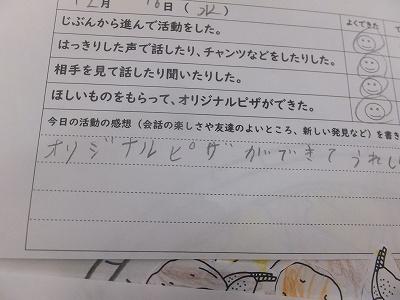 12月 16日（水）
よくできた
じぶんから進んで活動をした。
はっきりした声で話したり、チャンツなどをしたりした。
相手を見て話したり聞いたりした。
ほしいものをもらって、オリジナルピザができた。
今日の活動の感想（会話の楽しさや友達のよいところ、新しい発見など）を書き
オリジナルピザができてうれし